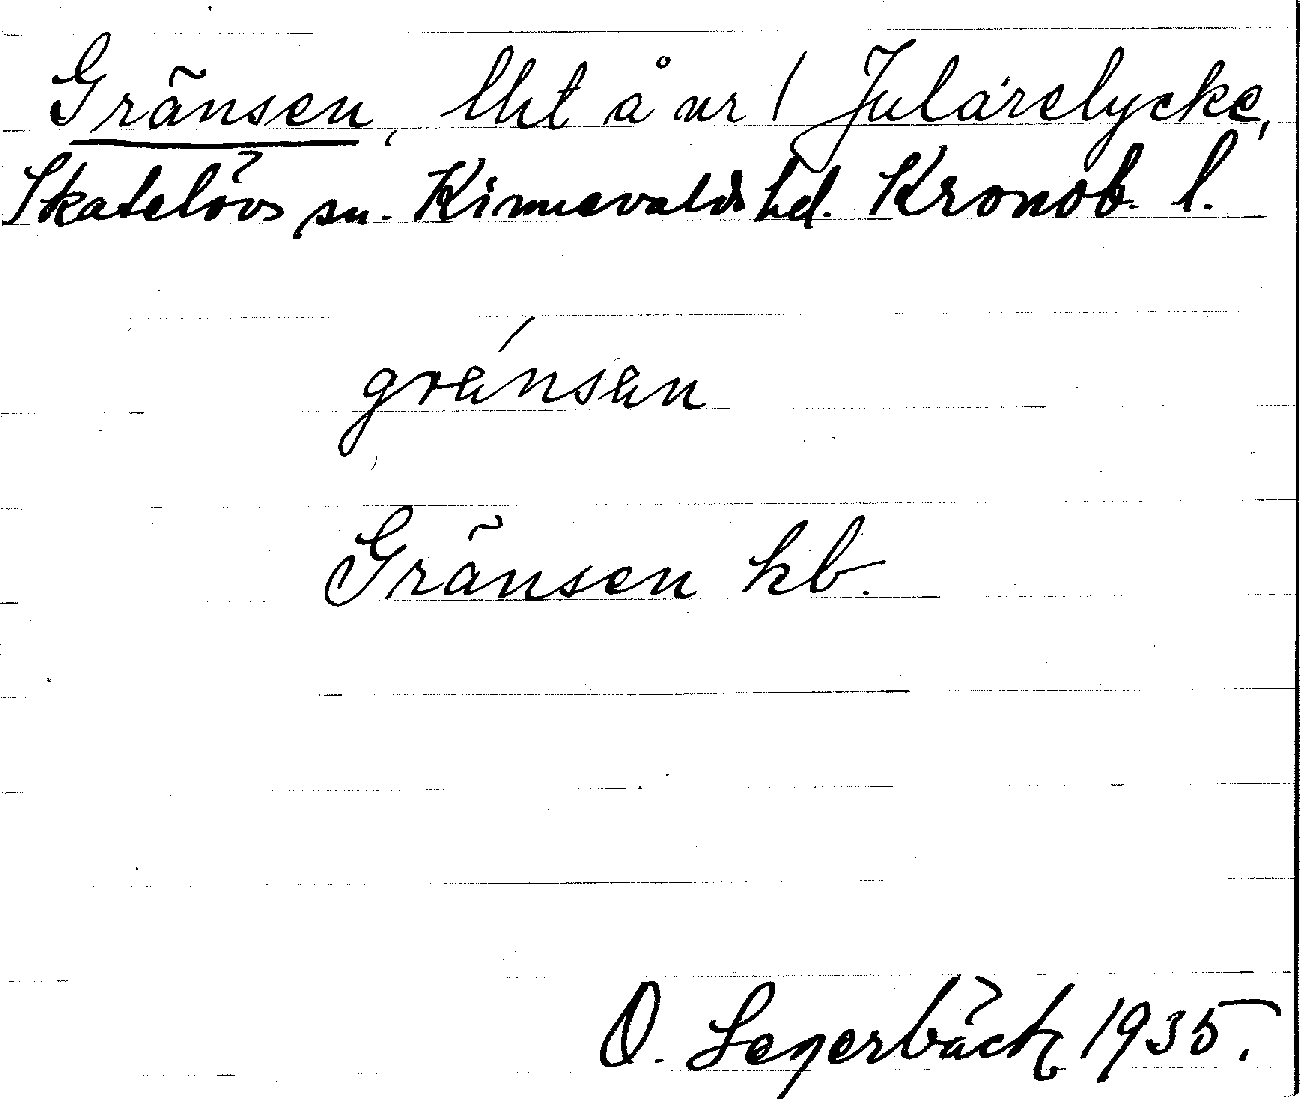 Gränsen, lht å nr 1 Julärelycke,
Skatelövs sn. Kinnevalds hd. Kronob. l.
gränsen
Gränsen kb.
O. Segerbäck 1935.